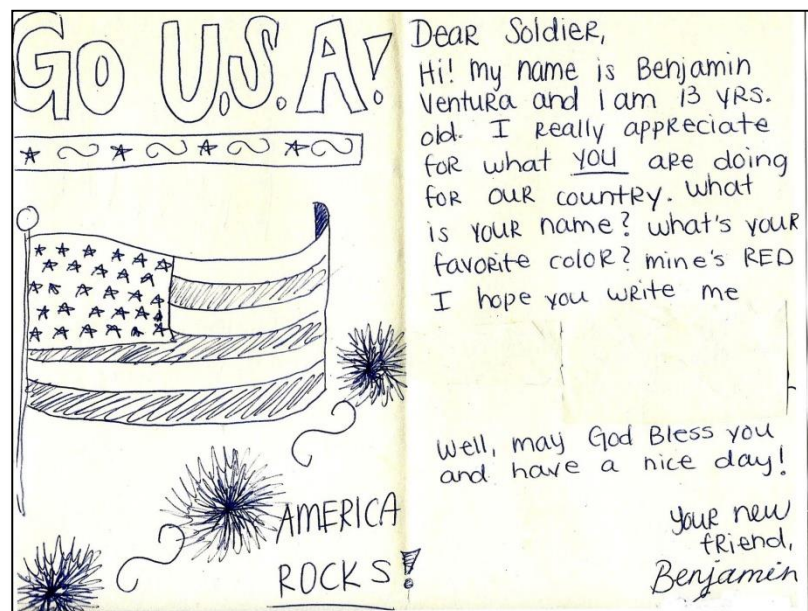 Go U.S.A!
AMERICA
ROCKS!
Dear Soldier,
Hi! my name is Benjamin
Ventura and I am 13 yrs.
old. I really appreciate
for what you are doing
for our country. What
is your name? what's your
favorite color? mine's RED
I hope you write me
Well, may God Bless you
and have a nice day!
your new
friend,
Benjamin